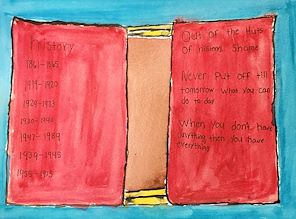 History
1861-1865
1919-1920
1929-1933
1947-1989
1939-1945
Out of the Huts
of history's Shame
Never Put off till
tomorrow what you can
do to day
When You don't have
anything then you have
everything